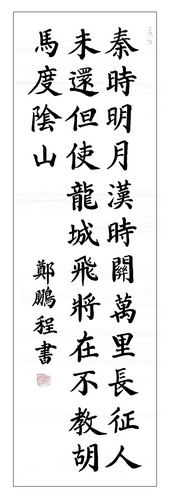 秦時明月漢時關萬里長征人
未還但使龍城飛將在不教胡
馬度陰山
鄭鵬程書